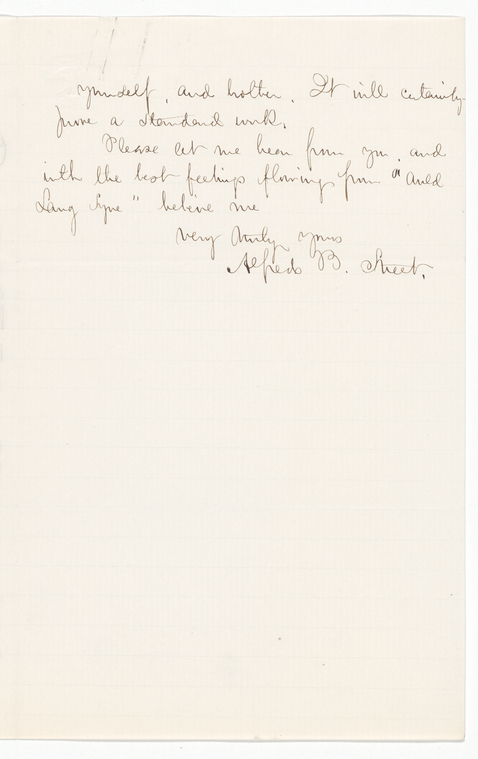 yourself, and brother. It will certainly
prove a standard work.
Please let me hear from you, and
with the best feelings flowing from "Auld
Lang Syne" believe me
Very truly yours
Alfred B. Street.